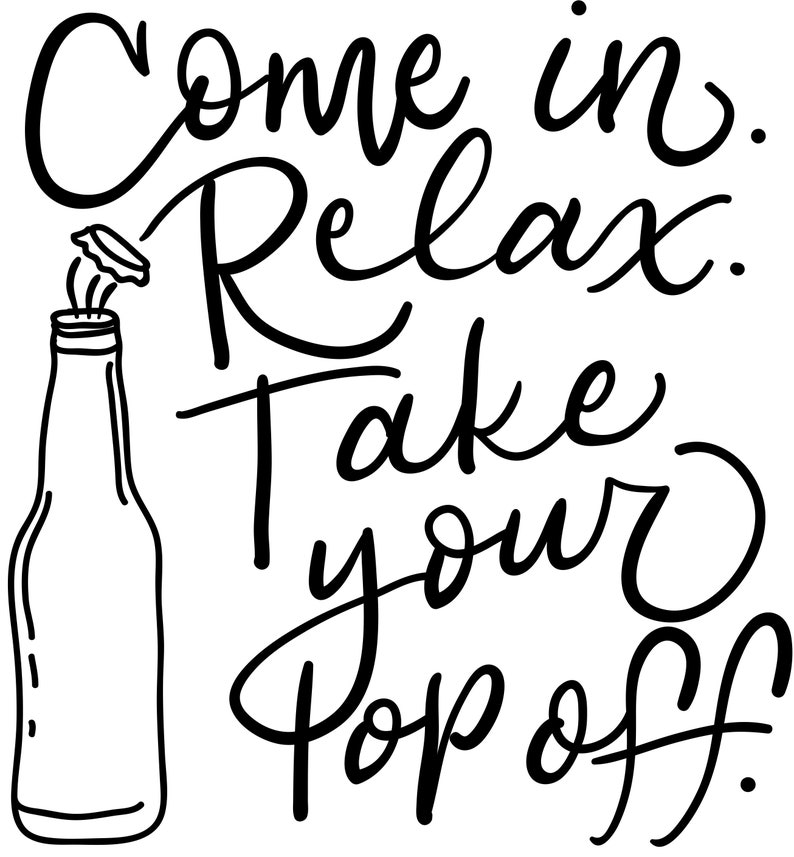 Come in.
Relax.
Take
your
Pop off.